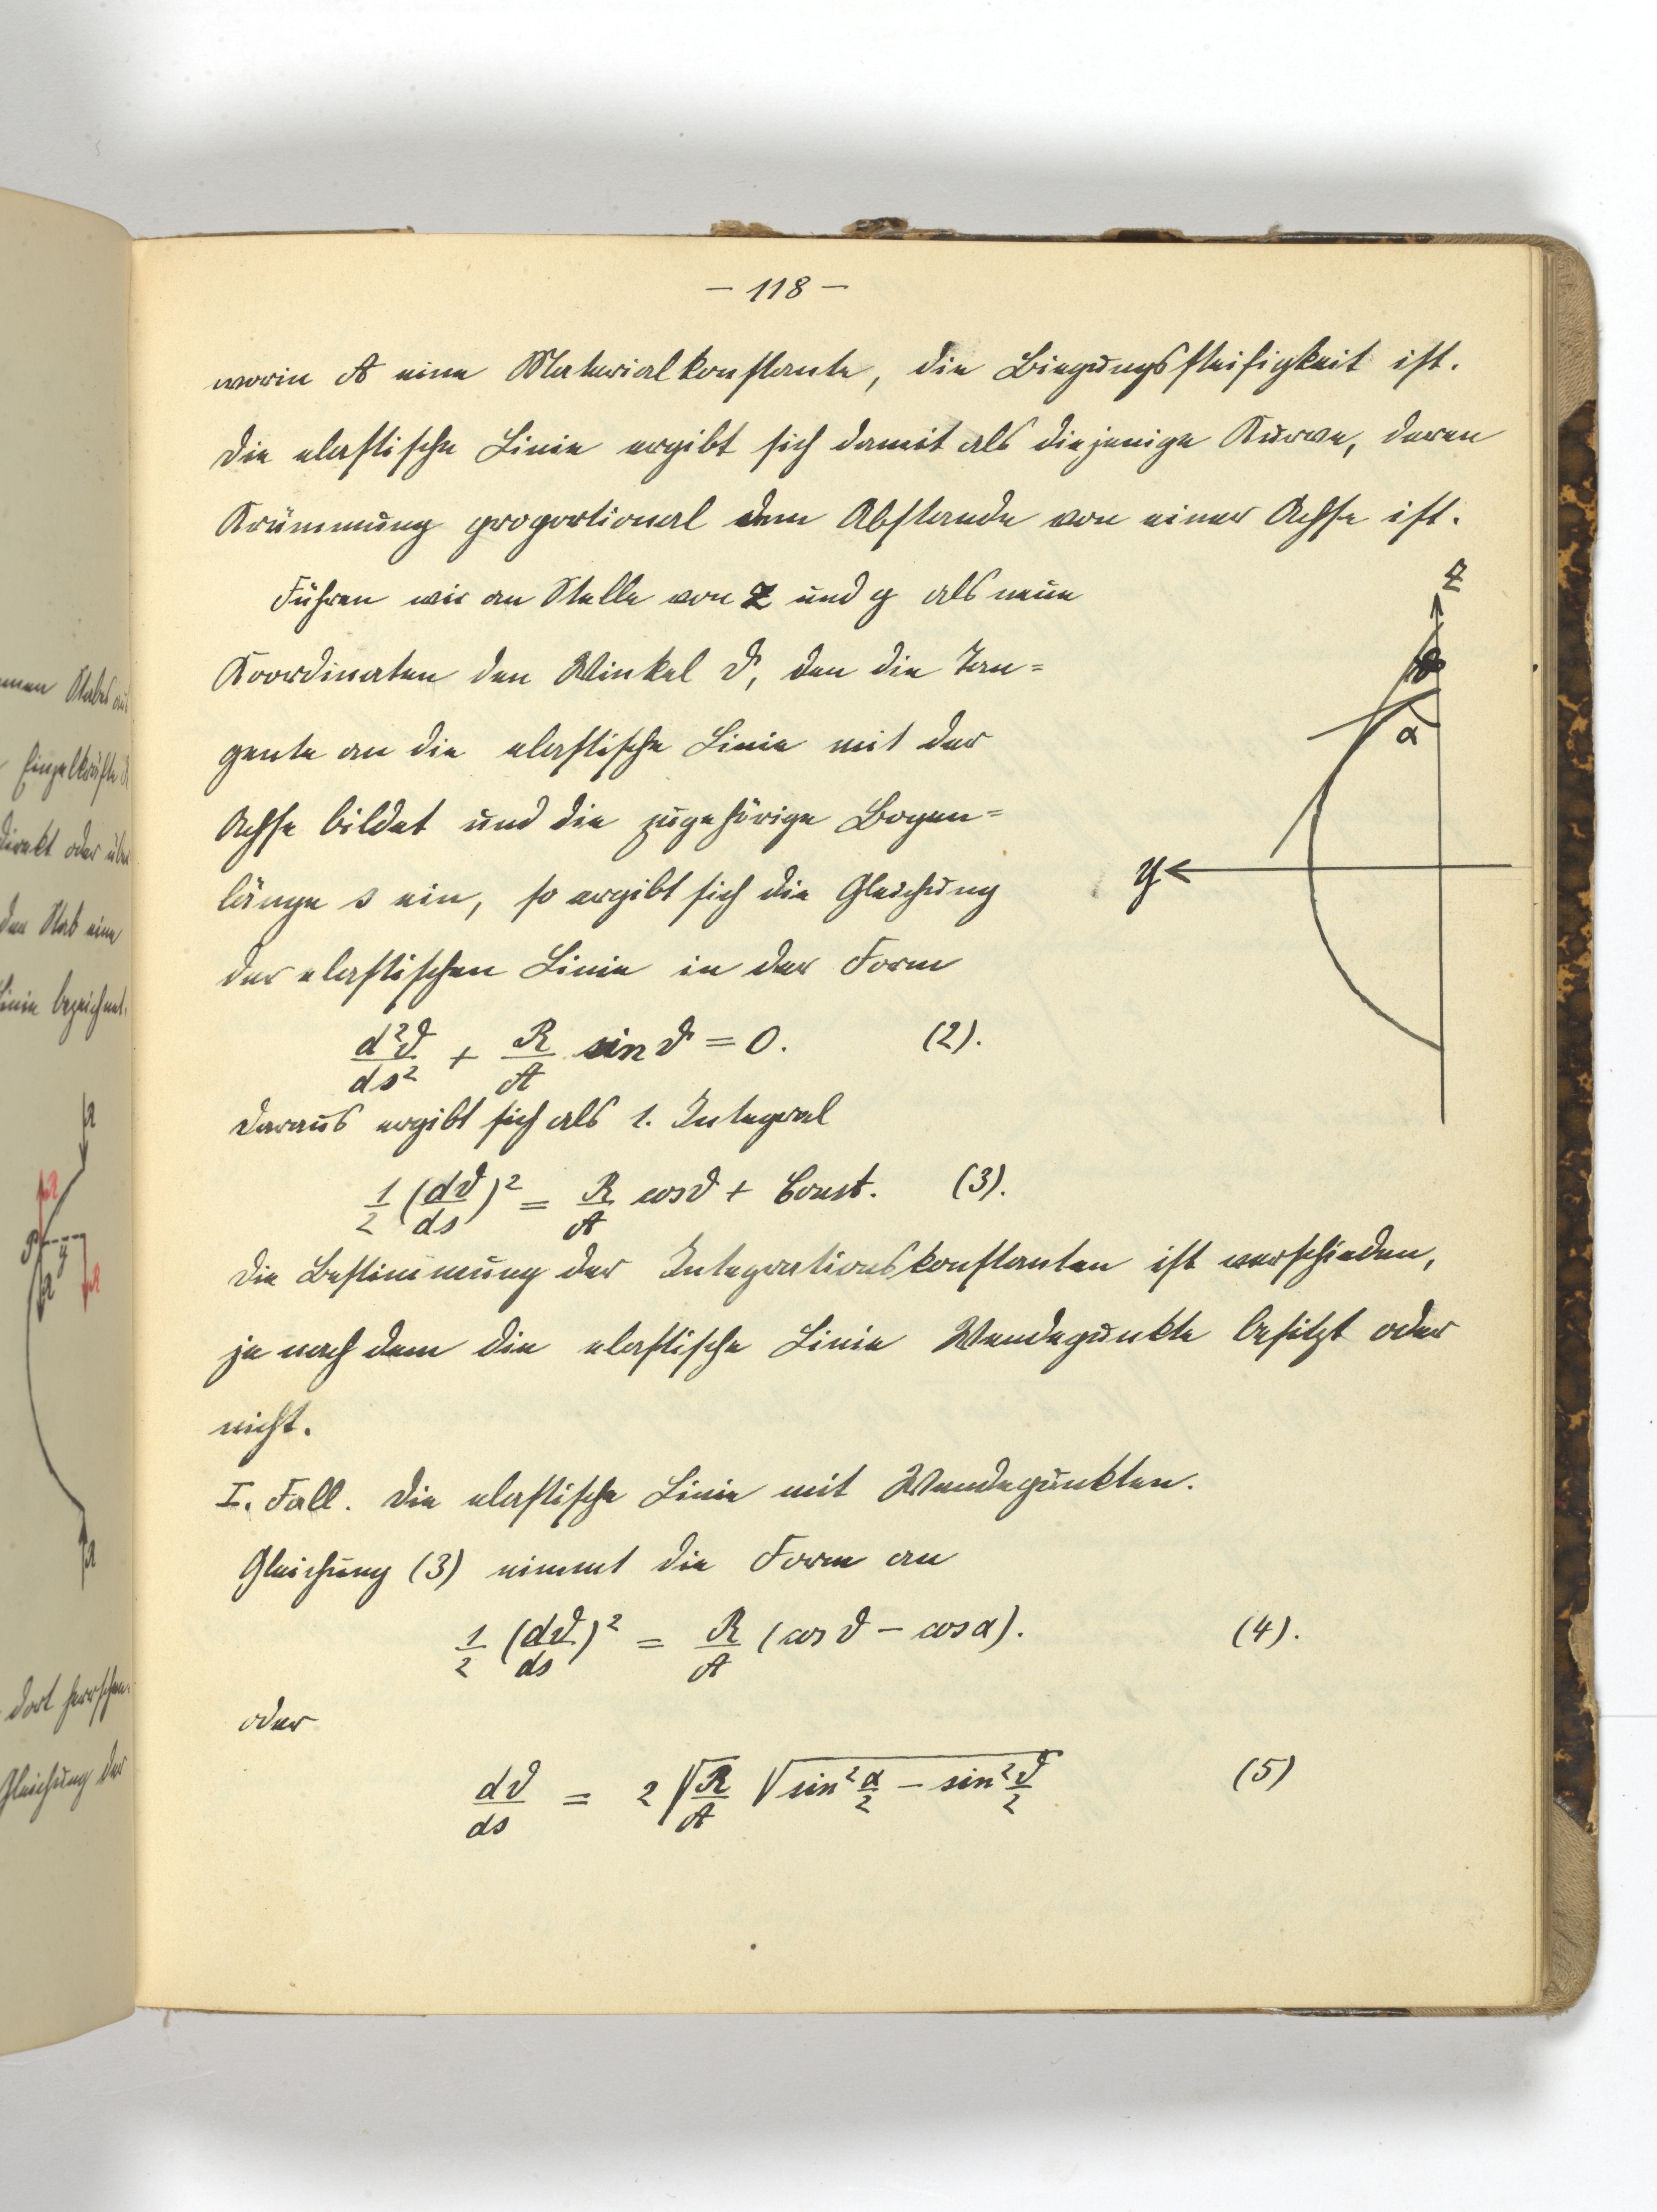 — 118 —
worin A eine Materialkonstante, die Biegungssteifigkeit ist.
Die elastische Linie ergibt sich damit als diejenige Kurve, deren
Krümmung proportional dem Abstande von einer Achse ist.
Führen wir an Stelle von z und y als neue
Koordinaten den Winkel ϑ, den die Tan=
gente an die elastische Linie mit der
Achse bildet und die zugehörige Bogen=
länge s ein, so ergibt sich die Gleichung
der elastischen Linie in der Form
d²ϑ/ds² + R/A sin ϑ = 0. (2).
Daraus ergibt sich als 1. Integral
1/2 (dϑ/ds)² = R/A cos ϑ + Const. (3).
Die Bestimmung der Integrationskonstanten ist verschieden,
je nach dem die elastische Linie Wendepunkte besitzt oder
nicht.
I. Fall. Die elastische Linie mit Wendepunkten.
Gleichung (3) nimmt die Form an
1/2 (dϑ/ds)² = R/A (cos ϑ − cos α). (4).
oder
dϑ/ds = 2 √(R/A) √(sin² α/2 − sin² ϑ/2) (5)
z
ϑ
α
y
Stabes
Einzelkräfte
direkt oder über
den Stab eine
Linie bezeichnet.
R
R
P
y
R
R
R
dort herrschen
Gleichung der